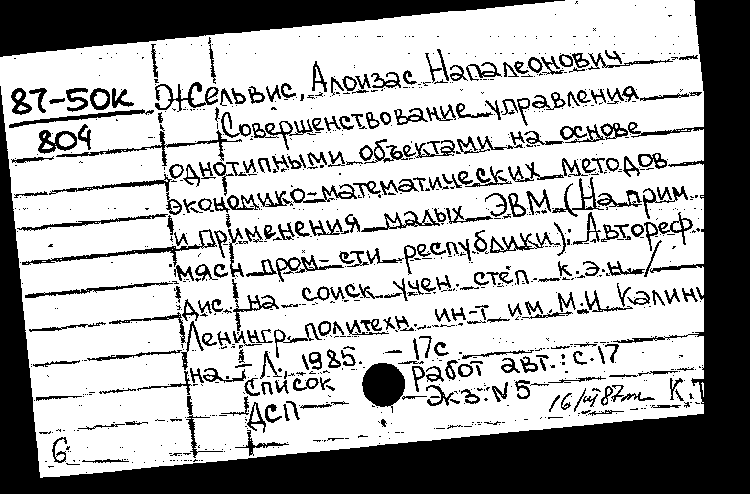 87-50к
804
Жельвис, Алоизас Напалеонович
Совершенствование управления
однотипными объектами на основе
экономико-математических методов
и применения малых ЭВМ (На прим
мясн. пром-сти республики): Автореф.
дис. на соиск учен. степ. к.э.н. /
Ленингр. политехн. ин-т им. М.И. Калини
на. – Л., 1985. – 17с
список Работ авт.: с.17
ДСП Экз. N5
К.Т
6